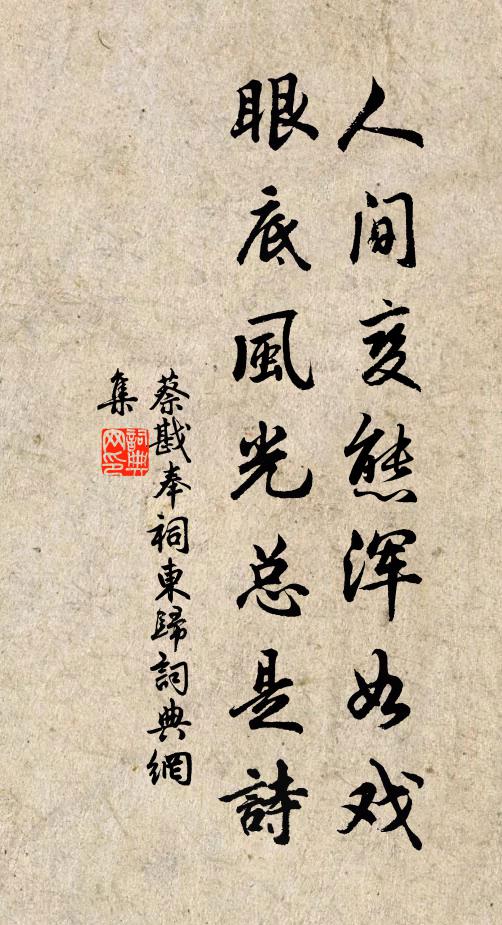 人间变态浑如戏
眼底風光总是詩
蔡戡奉祠東歸詞典網
集
詞典
网印